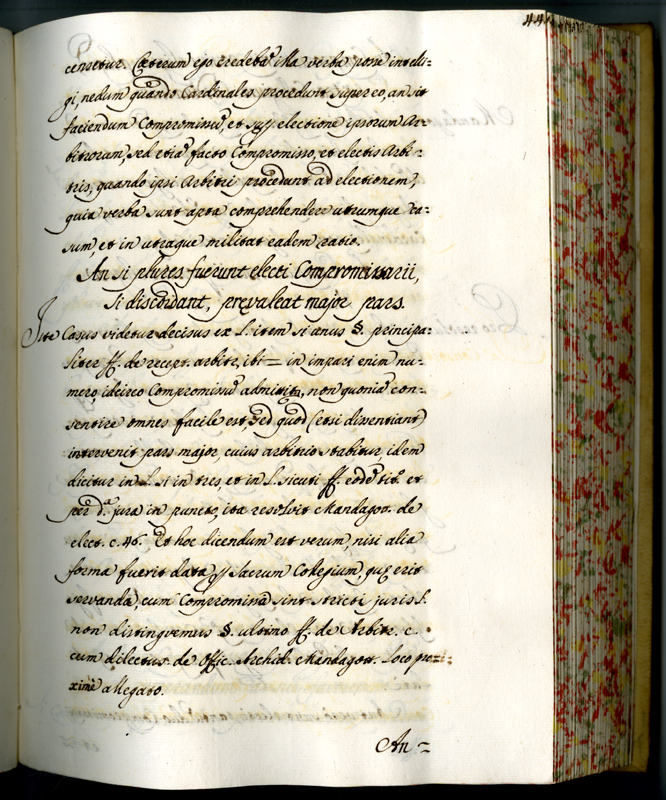 censetur. Cæterum ego credebā illa verba posse intelli-
gi, nedum quando Cardinales procedunt super eo, an sit
faciendum Compromissū, et super electione ipsorum Ar-
bitrorum, sed etiā facto Compromisso, et electis Arbi-
tris, quando ipsi Arbitri procedunt ad electionem,
quia verba sunt apta comprehendere utrumque ca-
sum, et in utraque militat eadem ratio.
An si plures fuerunt electi Compromissarii,
si discordant, prevaleat major pars.
Iste Casus videtur decisus ex l. item si unus §. principa-
liter ff. de recept. arbitr, ibi = in impari enim nu-
mero, idcirco Compromissū admittitr, non quoniā con-
sentire omnes facile est, sed quod (etsi dissentiant)
intervenit pars major, cuius arbitrio stabitur, idem
dicitur in l. si in tres, et in l. sicuti ff. eodē tit. et
per d.a jura in puncto, ita resolvit Mandagot. de
elect. c. 46. Et hoc dicendum est verum, nisi alia
forma fuerit data per Sacrum Collegium, quę erit
servanda, cum Compromissa sint stricti juris l.
non distinguemus §. ultimo ff. de Arbitr. c.
cum dilectus de Offic. Archid. Mandagott. loco pro-
ximè allegato.
An-